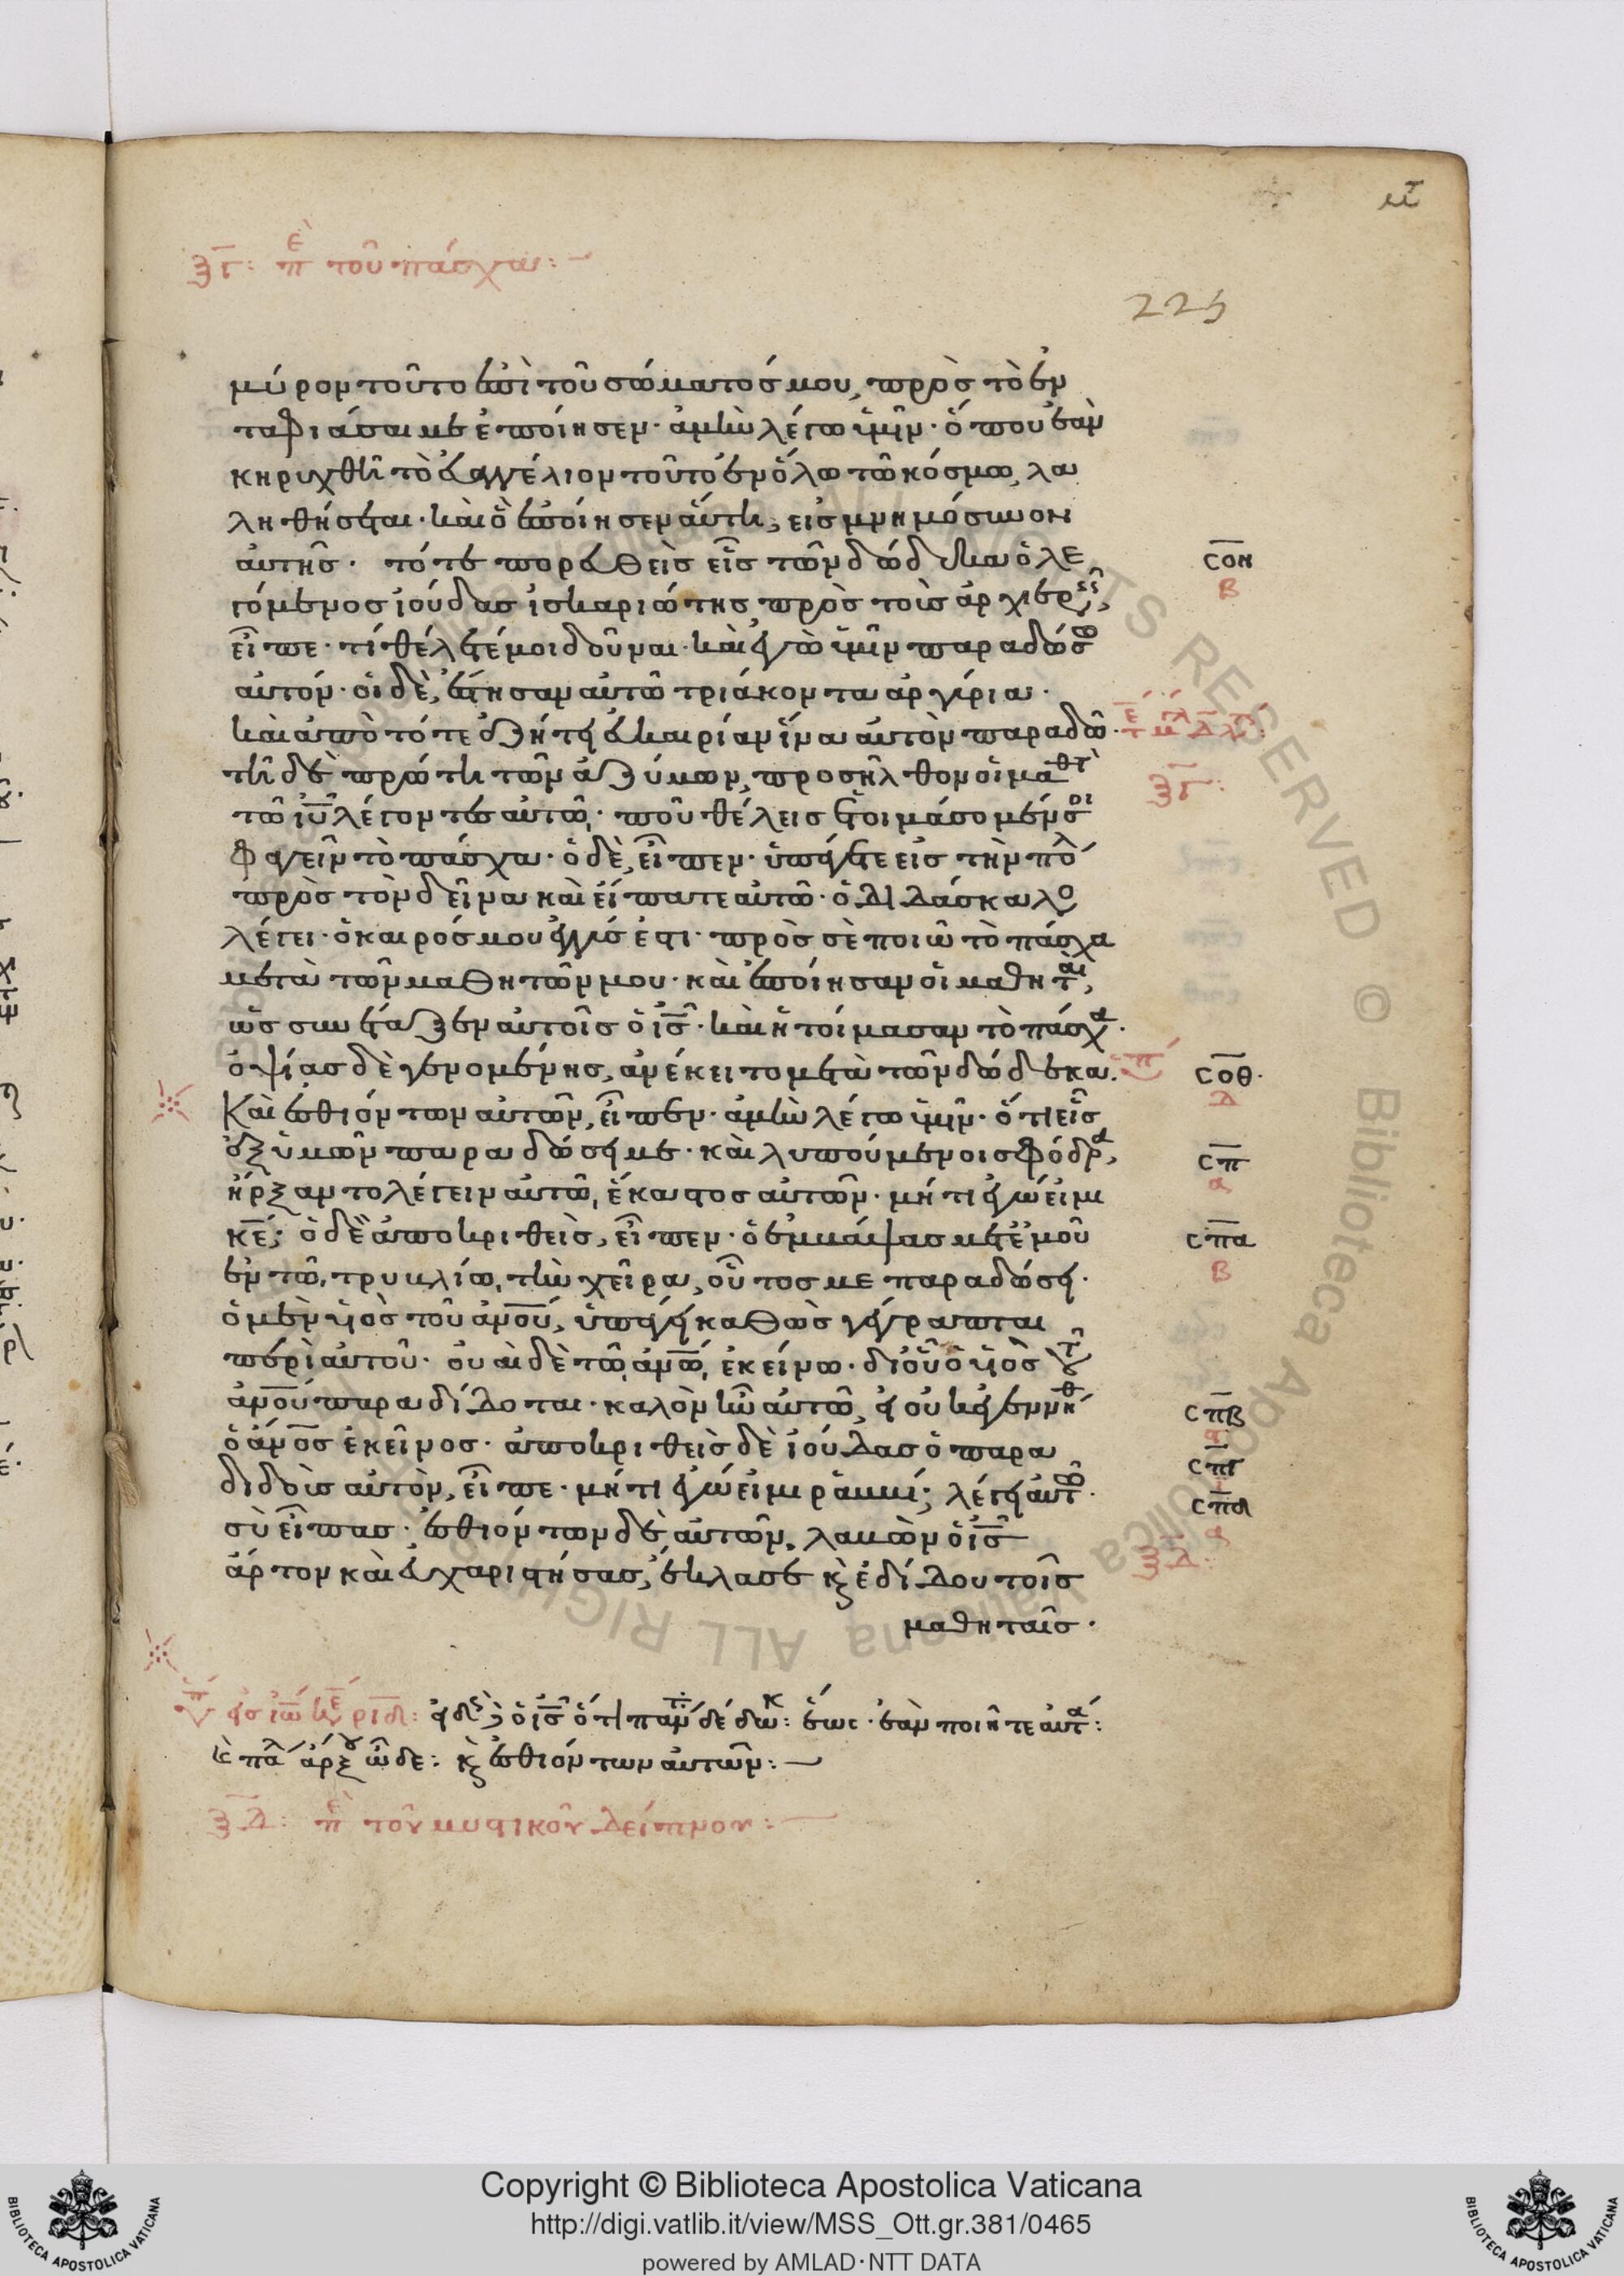 ξγ: πε τοῦ πάσχα:
225
μύρον τοῦτο ἐπὶ τοῦ σώματός μου, πρὸς τὸ ἐν
ταφιάσαι με ἐποίησεν· ἀμὴν λέγω ὑμῖν· ὅπου ἐὰν
κηρυχθῆ τὸ εὐαγγέλιον τοῦτο ἐν ὅλω τῶ κόσμω, λα
ληθήσεται· καὶ ὃ ἐποίησεν αὕτη, εἰς μνημόσυνον
αὐτῆς· τότε πορευθεὶς εἷς τῶν δώδεκα ὁ λε
γόμενος ἰούδας ἰσκαριώτης πρὸς τοὺς ἀρχιερεῖς,
εἶπε· τί θέλετέ μοι δοῦναι· καὶ ἐγὼ ὑμῖν παραδώσω
αὐτόν· οἱ δὲ, ἔστησαν αὐτῶ τριάκοντα ἀργύρια·
καὶ ἀπὸ τότε ἐζήτει εὐκαιρίαν ἵνα αὐτὸν παραδῶ·
τῆ δὲ πρώτη τῶν ἀζύμων, προσῆλθον οἱ μαθτ
τῶ ιυ λέγοντες αὐτῶ· ποῦ θέλεις ἑτοιμάσομέν σοι
φαγεῖν τὸ πάσχα· ὁ δὲ, εἶπεν· ὑπάγετε εἰς τὴν πό
πρὸς τὸν δεῖνα καὶ εἴπατε αὐτῶ· ὁ διδάσκαλο
λέγει· ὁ καιρός μου ἐγγύς ἐστι· πρὸς σὲ ποιῶ τὸ πάσχα
μετὰ τῶν μαθητῶν μου· καὶ ἐποίησαν οἱ μαθηταὶ,
ὡς συνέταξεν αὐτοῖς ὁ ις· καὶ ἡτοίμασαν τὸ πάσχα·
ὀψίας δὲ γενομένης, ἀνέκειτο μετὰ τῶν δώδεκα.
Καὶ ἐσθιόντων αὐτῶν, εἶπεν· ἀμὴν λέγω ὑμῖν· ὅτι εἷς
ἐξ ὑμῶν παραδώσει με· καὶ λυπούμενοι σφόδρα,
ἤρξαντο λέγειν αὐτῶ, ἕκαστος αὐτῶν· μήτι ἐγώ εἰμι
κε; ὁ δὲ ἀποκριθεὶς, εἶπεν· ὁ ἐμβάψας μετ ἐμοῦ
ἐν τῶ τρυβλίω, τὴν χεῖρα, οὗτος με παραδώσει·
ὁ μὲν υἱὸς τοῦ ανου, ὑπάγει καθὼς γέγραπται
περὶ αὐτοῦ· οὐαὶ δὲ τῶ ανω ἐκείνω· δι οὗ ὁ υἱὸς τοῦ
ανου παραδίδοται· καλὸν ἦν αὐτῶ, εἰ οὐκ ἐγεννήθ
ὁ ανος ἐκεῖνος· ἀποκριθεὶς δὲ ἰούδας ὁ παρα
διδοὺς αὐτὸν, εἶπε· μήτι ἐγώ εἰμι ραββί; λέγει αὐτῶ·
σὺ εἶπας· ἐσθιόντων δὲ αὐτῶν, λαβὼν ὁ ις
ἄρτον καὶ εὐχαριστήσας, ἔκλασε κ ἐδίδου τοῖς
μαθηταῖς·
σοη
β
ξγ:
σοθ·
δ
σπ
α
σπα
β
σπβ
σπγ
σπδ
ξδ:
ριδ: εἰδ ὁ ις ὅτι παν δέδωκ: ἕως· ἐὰν ποιῆτε αὐτά:
πάλ ἄρξου ὧδε: κ ἐσθιόντων αὐτῶν:
ξδ: πε τοῦ μυστικοῦ δείπνου:
Copyright © Biblioteca Apostolica Vaticana
http://digi.vatlib.it/view/MSS_Ott.gr.381/0465
powered by AMLAD·NTT DATA